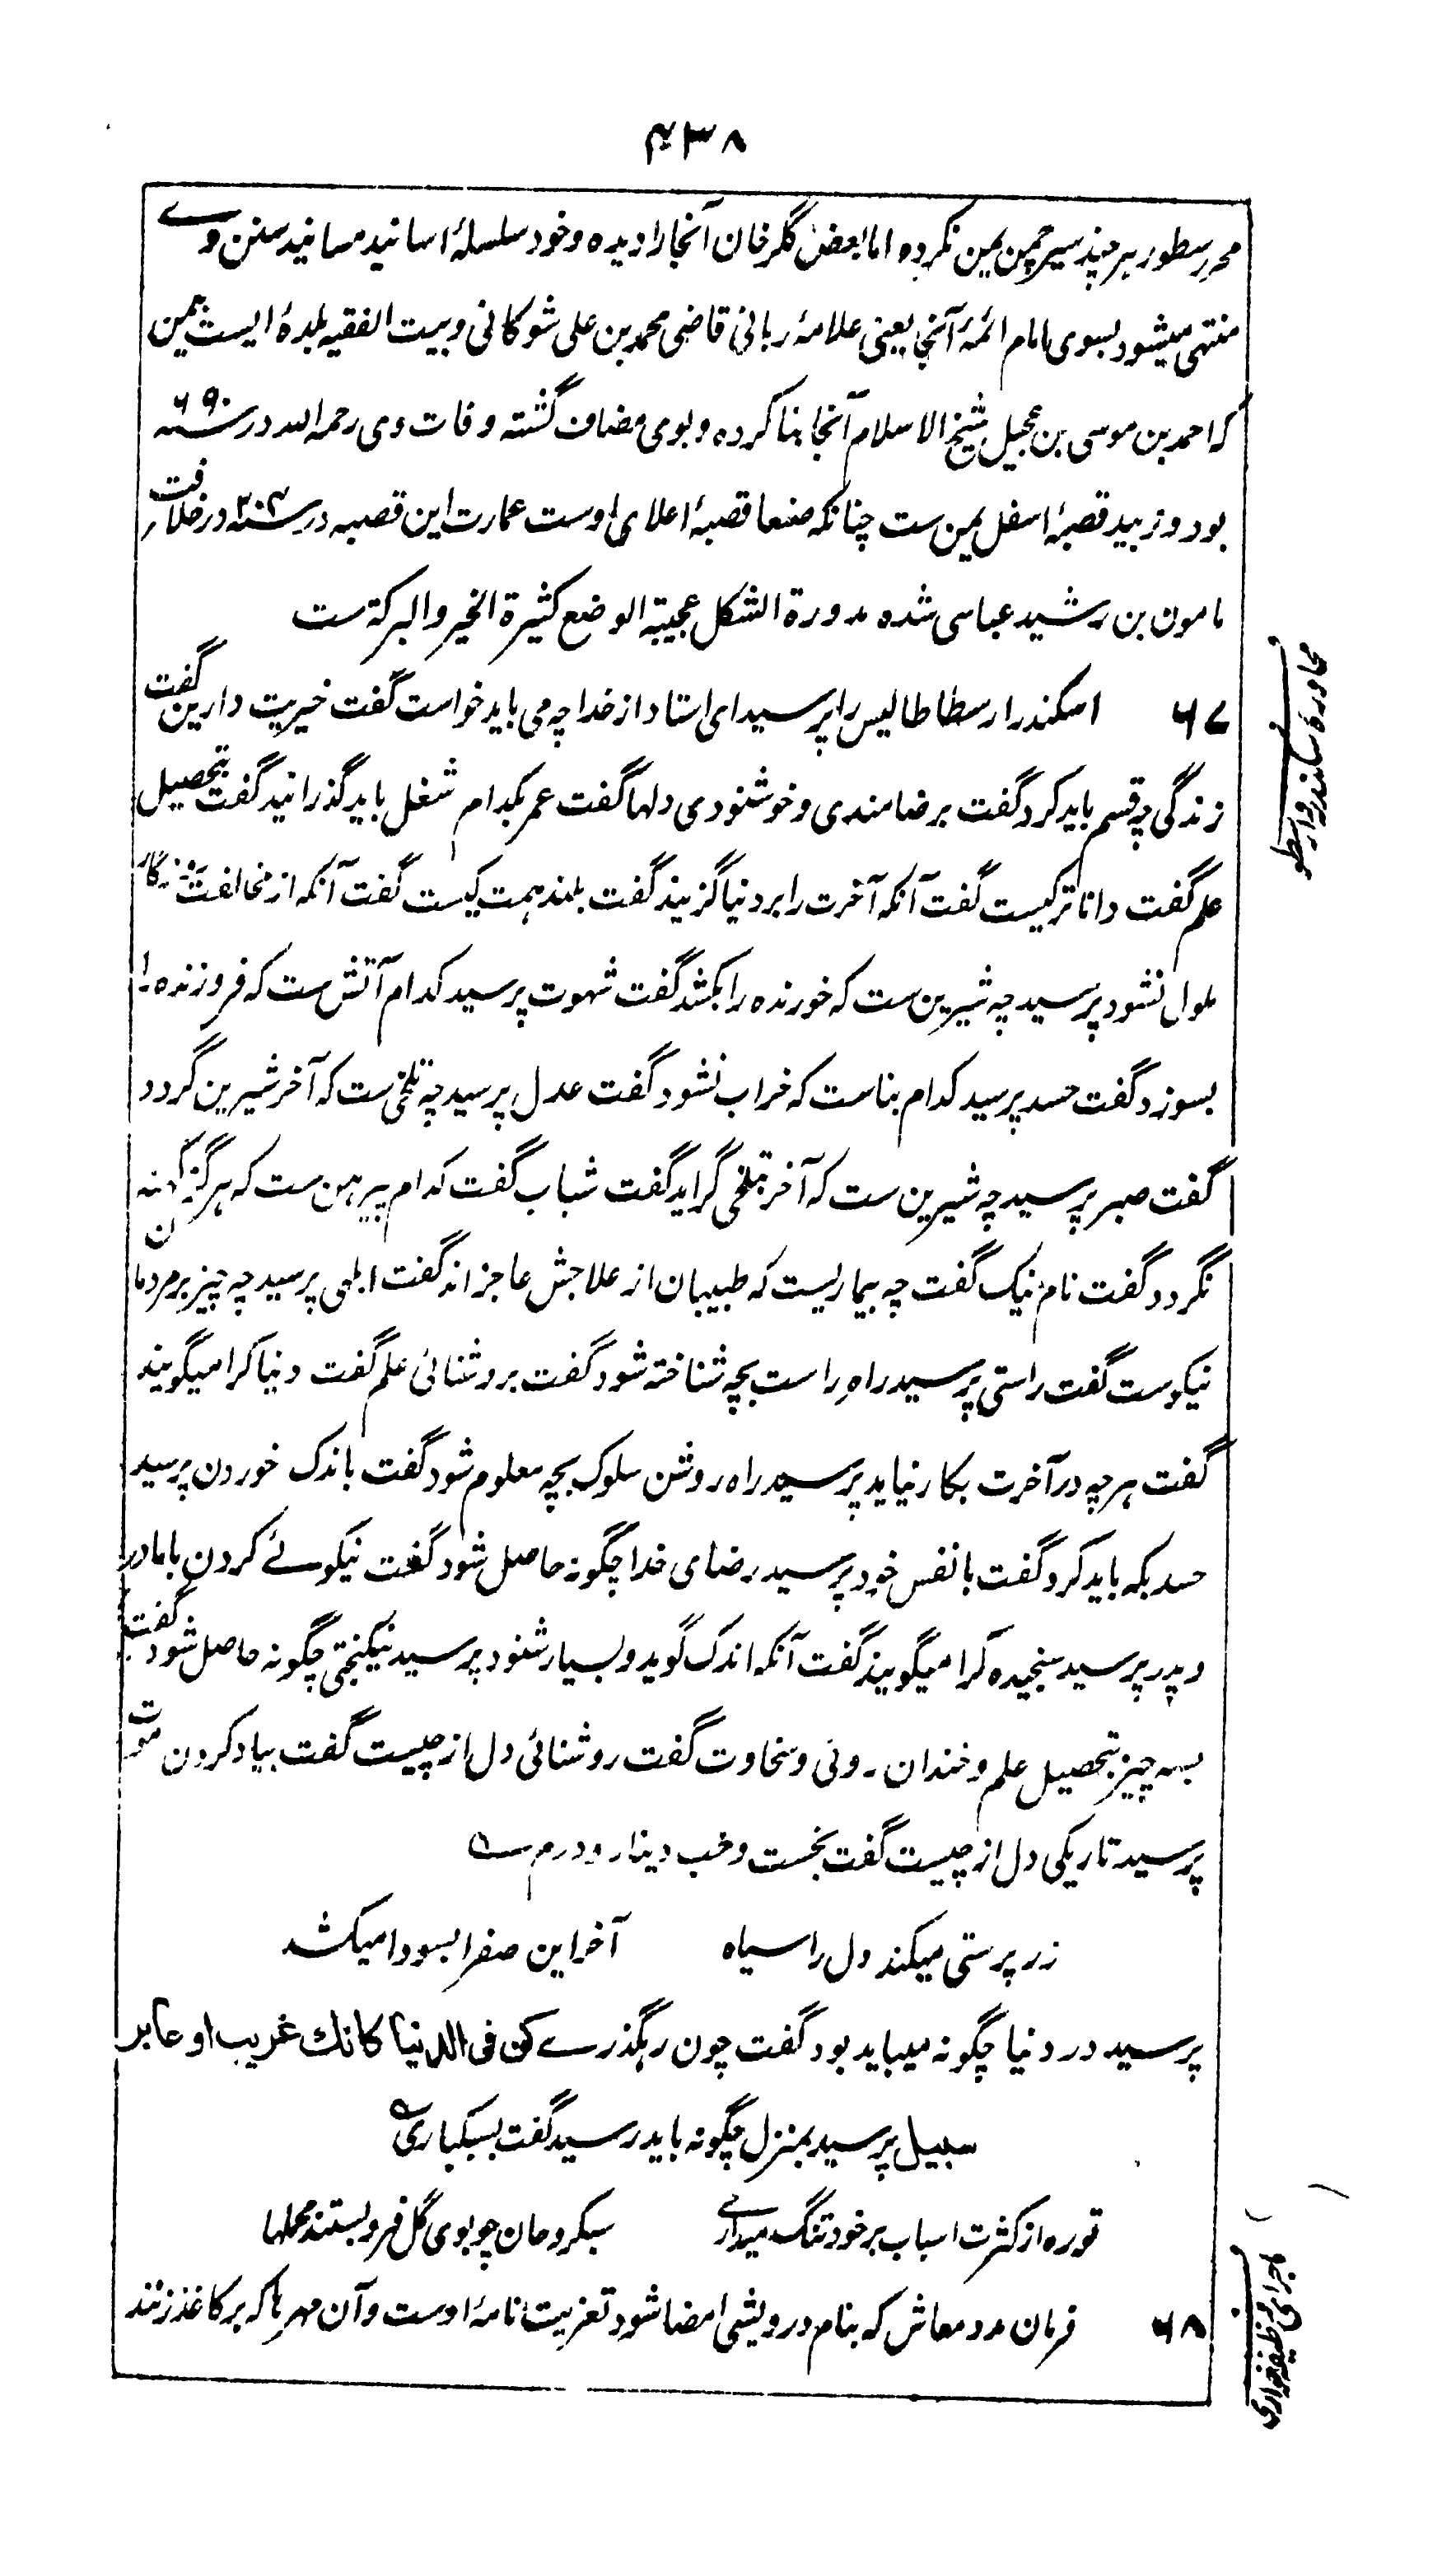 ۴۳۸
محرر سطور ہر چند سیر چمن یمن نکردہ اما بعض گلرخان آنجا را دیدہ و خود سلسلۂ اسانید مسانید سنن وے
منتہی میشود بسوی امام ائمۂ آنجا یعنی علامۂ ربانی قاضی محمد بن علی شوکانی و بیت الفقیہ بلدۂ ایست بیمن
کہ احمد بن موسی بن عجیل شیخ الاسلام آنجا بنا کردہ و بوی مضاف گشتہ وفات وی رحمہ اللہ در سنہ ۶۹۰
بود و زبید قصبۂ اسفل یمن ست چنانکہ صنعا قصبۂ اعلای اوست عمارت این قصبہ در سنہ ۲۰۴ در خلافت
مامون بن رشید عباسی شدہ مدورۃ الشکل عجیبۃ الوضع کثیرۃ الخیر والبرکۃ ست
محاورۂ سکندر و ارسطو
۶۷ اسکندر ارسطاطالیس را پرسید ای استاد از خدا چہ می باید خواست گفت خیریت دارین گفت
زندگی چہ قسم باید کرد گفت برضامندی و خوشنودی دلہا گفت عمر بکدام شغل باید گذرانید گفت بتحصیل
علم گفت داناتر کیست گفت آنکہ آخرت را بر دنیا گزیند گفت بلند ہمت کیست گفت آنکہ از مخالفت
ملول نشود پرسید چہ شیرین ست کہ خورندہ را بکشد گفت شہوت پرسید کدام آتش ست کہ فروزندہ را
بسوزد گفت حسد پرسید کدام بناست کہ خراب نشود گفت عدل پرسید چہ تلخی ست کہ آخر شیرین گردد
گفت صبر پرسید چہ شیرین ست کہ آخر بتلخی گراید گفت شباب گفت کدام پیرہن ست کہ ہرگز کہنہ
نگردد گفت نام نیک گفت چہ بیماریست کہ طبیبان از علاجش عاجز اند گفت ابلہی پرسید چہ چیز بر مردمان
نیکوست گفت راستی پرسید راہِ راست بچہ شناختہ شود گفت بروشنائی علم گفت دنیا کرا میگویند
گفت ہرچہ در آخرت بکار نیاید پرسید راہ روشن سلوک بچہ معلوم شود گفت باندک خوردن پرسید
حسد بکہ باید کرد گفت با نفس خود پرسید رضای خدا چگونہ حاصل شود گفت نیکوئے کردن با مادر
و پدر پرسید سنجیدہ کرا میگویند گفت آنکہ اندک گوید و بسیار شنود پرسید نیکبختی چگونہ حاصل شود گفت
بسہ چیز بتحصیل علم و خندان روئی و سخاوت گفت روشنائی دل از چیست گفت بیاد کردن موت
پرسید تاریکی دل از چیست گفت بخست و حب دینار و درم ے
زر پرستی میکند دل را سیاہ آخر این صفرا بسودا میکشد
پرسید در دنیا چگونہ میباید بود گفت چون رہگذرے کن فی الدنیا کانك غریب او عابر
سبیل پرسید بمنزل چگونہ باید رسید گفت بسبکباری ہ
تو رہ از کثرت اسباب بر خود تنگ میداری سبکروحان چو بوی گل فرو بستند محملہا
۶۸ فرمان مدد معاش کہ بنام درویشی امضا شود تعزیت نامۂ اوست و آن مہر ہا کہ بر کاغذ زنند